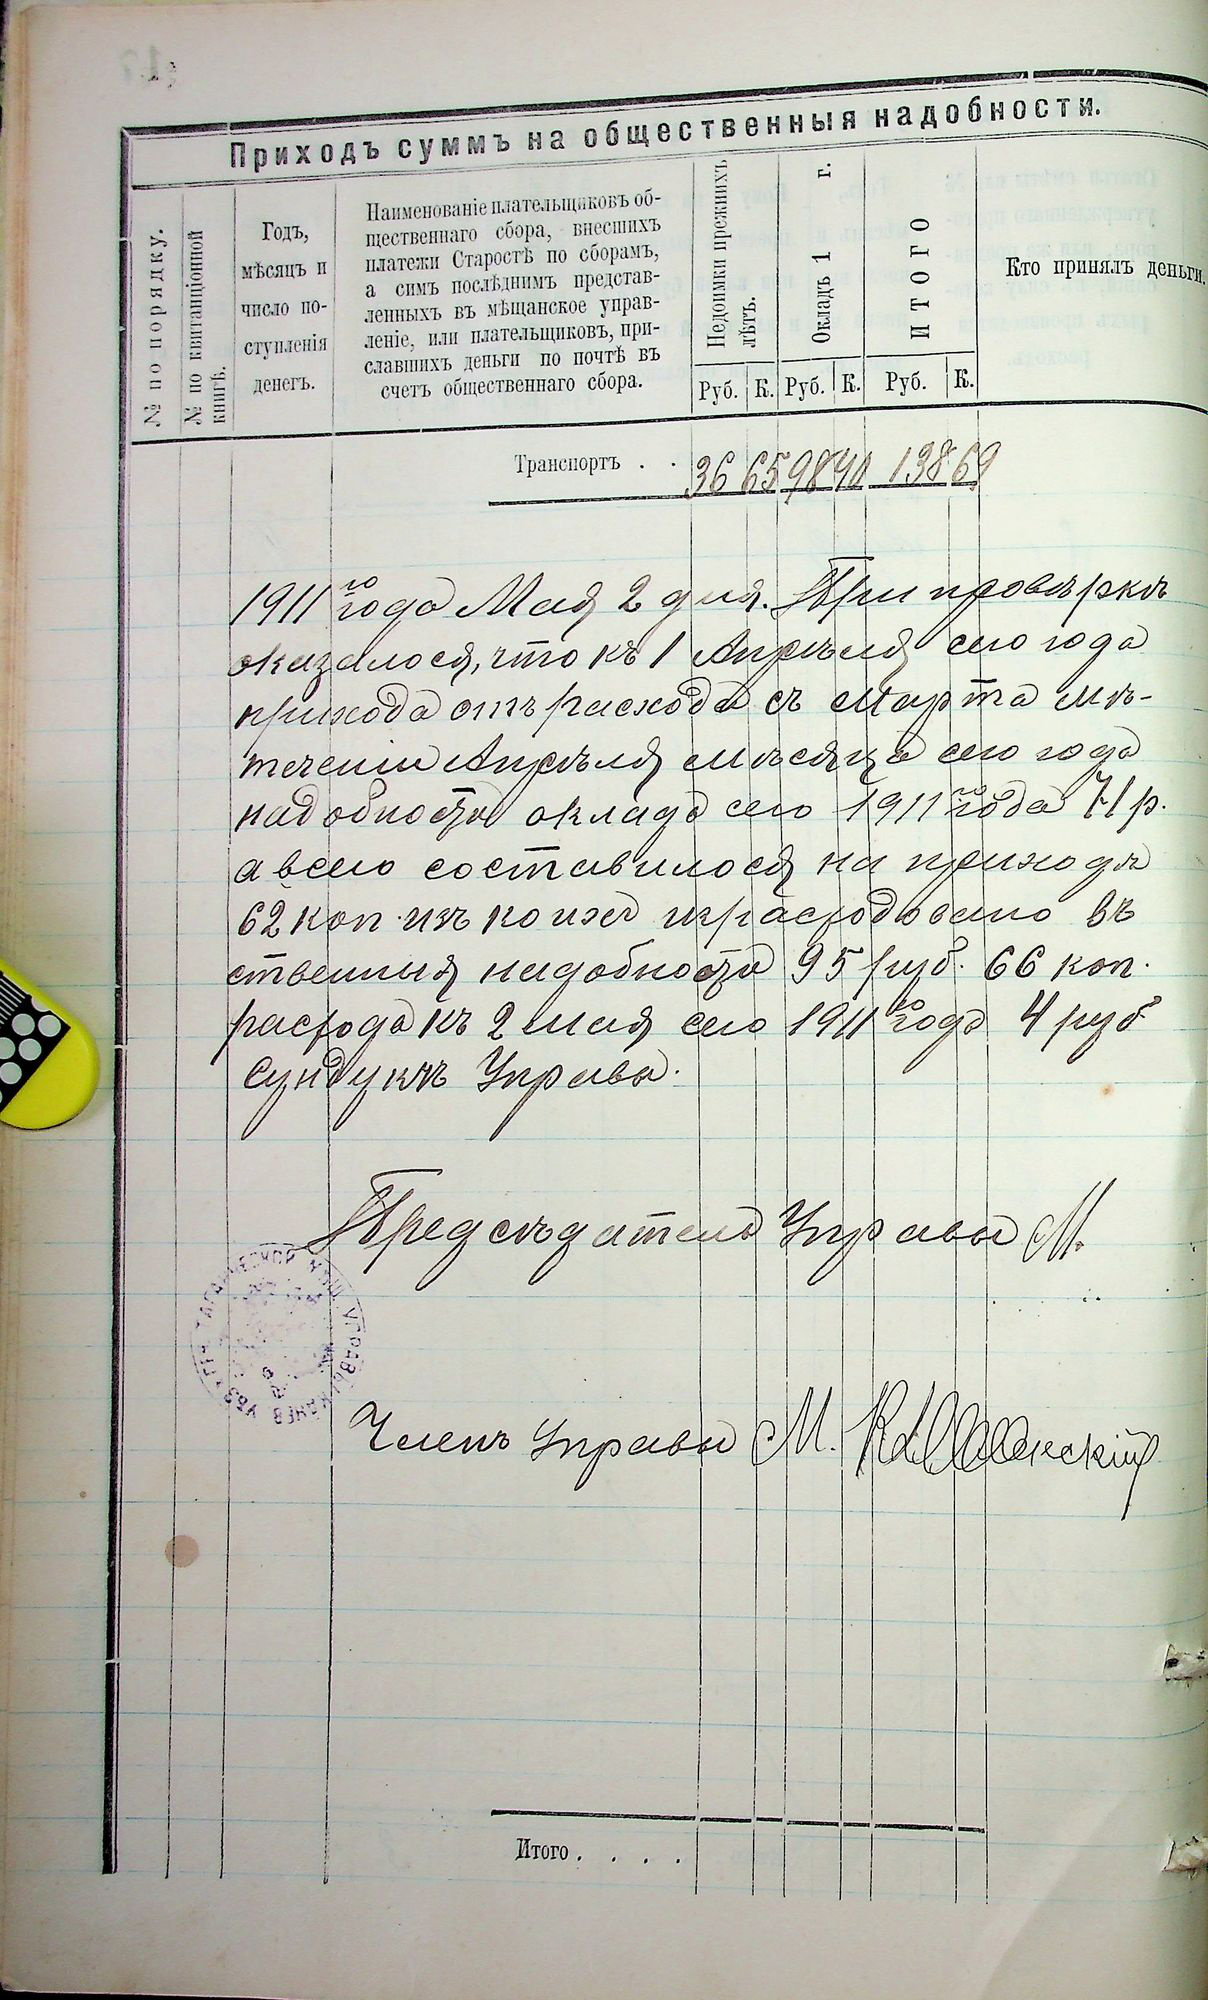 Приходъ суммъ на общественныя надобности.
№ по порядку.
№ по квитанціонной книгѣ.
Годъ,
мѣсяцъ и
число по-
ступленія
денегъ.
Наименованіе плательщиковъ об-
щественнаго сбора, внесшихъ
платежи Старостѣ по сборамъ,
а симъ послѣднимъ представ-
ленныхъ въ мѣщанское управ-
леніе, или плательщиковъ, при-
славшихъ деньги по почтѣ въ
счетъ общественнаго сбора.
Недоимки прежнихъ
лѣтъ.
Окладъ 1 г.
ИТОГО
Кто принялъ деньги.
Руб. К. Руб. К. Руб. К.
Транспортъ . . 36 65 98 40 138 69
1911 го года Мая 2 дня. При провѣркѣ
оказалося, что къ 1 Апрѣля сего года
прихода отъ расхода съ Марта мѣ-
теченіи Апрѣля мѣсяца сего года
надобности оклада сего 1911 го года 71 р.
а всего составилося на приходѣ
62 коп. изъ коихъ израсходовано въ
ственныя надобности 95 руб. 66 коп.
расхода къ 2 мая сего 1911 го года 4 руб
сундукѣ Управы.
Предсѣдатель Управы М.
Членъ Управы М.
Итого . . . .